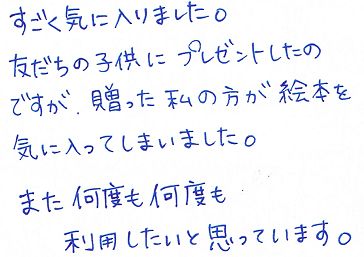 すごく気に入りました。
友だちの子供にプレゼントしたの
ですが、贈った私の方が絵本を
気に入ってしまいました。
また何度も何度も
利用したいと思っています。